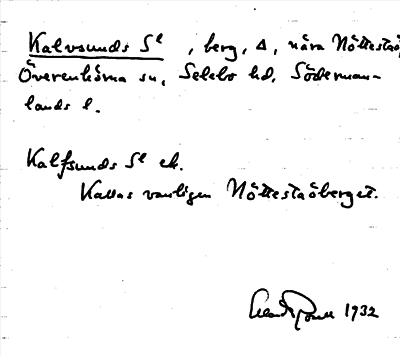 Kalvsunds Sl, berg, Δ, nära Nöttesta
Överenhörna sn, Selebo hd, Söderman-
lands l.
Kalfsunds Sl ek.
Kallas vanligen Nöttestaöberget.
1932